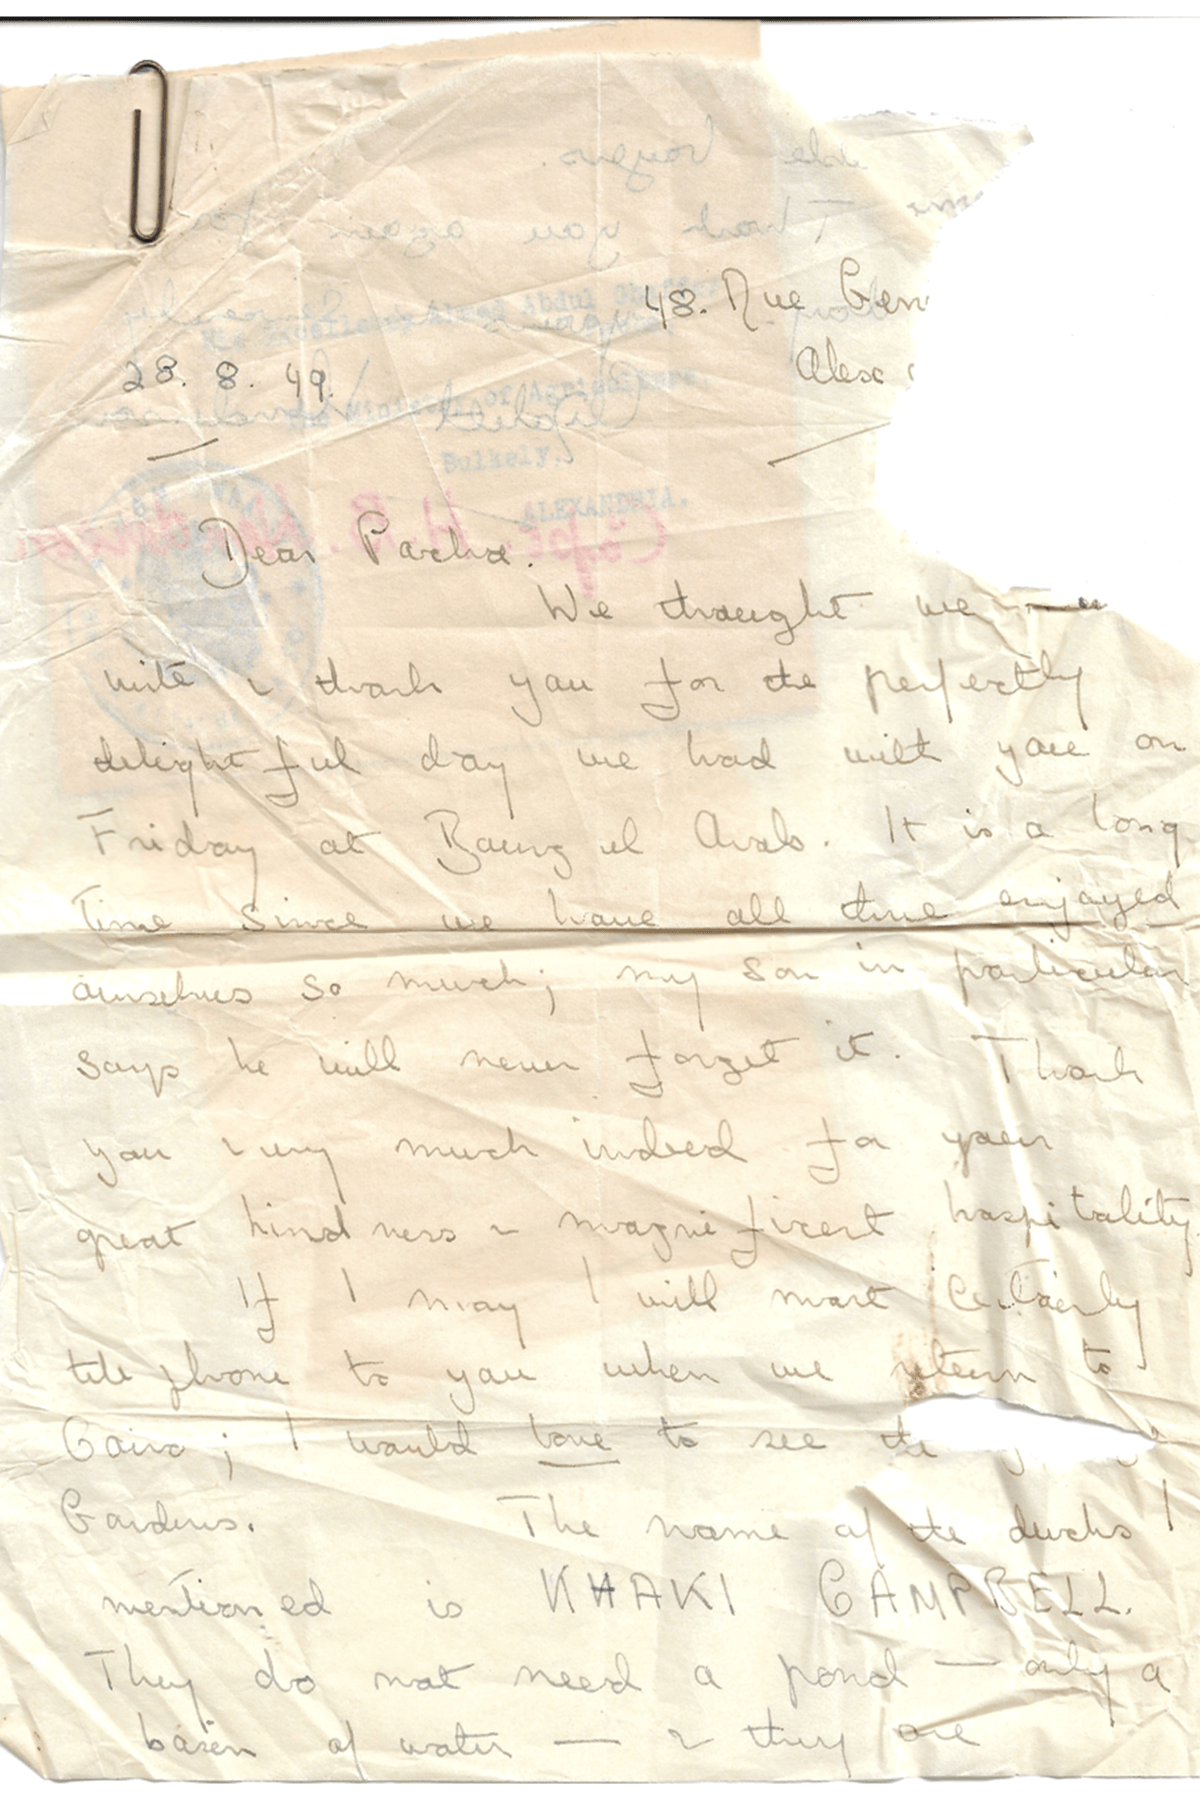 48. Rue Glen
28. 8. 49.
Alex
His Excellency Ahmed Abdul Ghaffar
The Minister of Agriculture,
Bulkely.
ALEXANDRIA.
Dear Pacha.
We thought we
write & thank you for the perfectly
delightful day we had with you on
Friday at Bourg el Arab. It is a long
time since we have all three enjoyed
ourselves so much; my son in particular
says he will never forget it. Thank
you very much indeed for your
great kindness & magnificent hospitality
If I may I will most certainly
telephone to you when we return to
Cairo; I would love to see the
Gardens. The name of the ducks I
mentioned is KHAKI CAMPBELL.
They do not need a pond — only a
basin of water — & they are